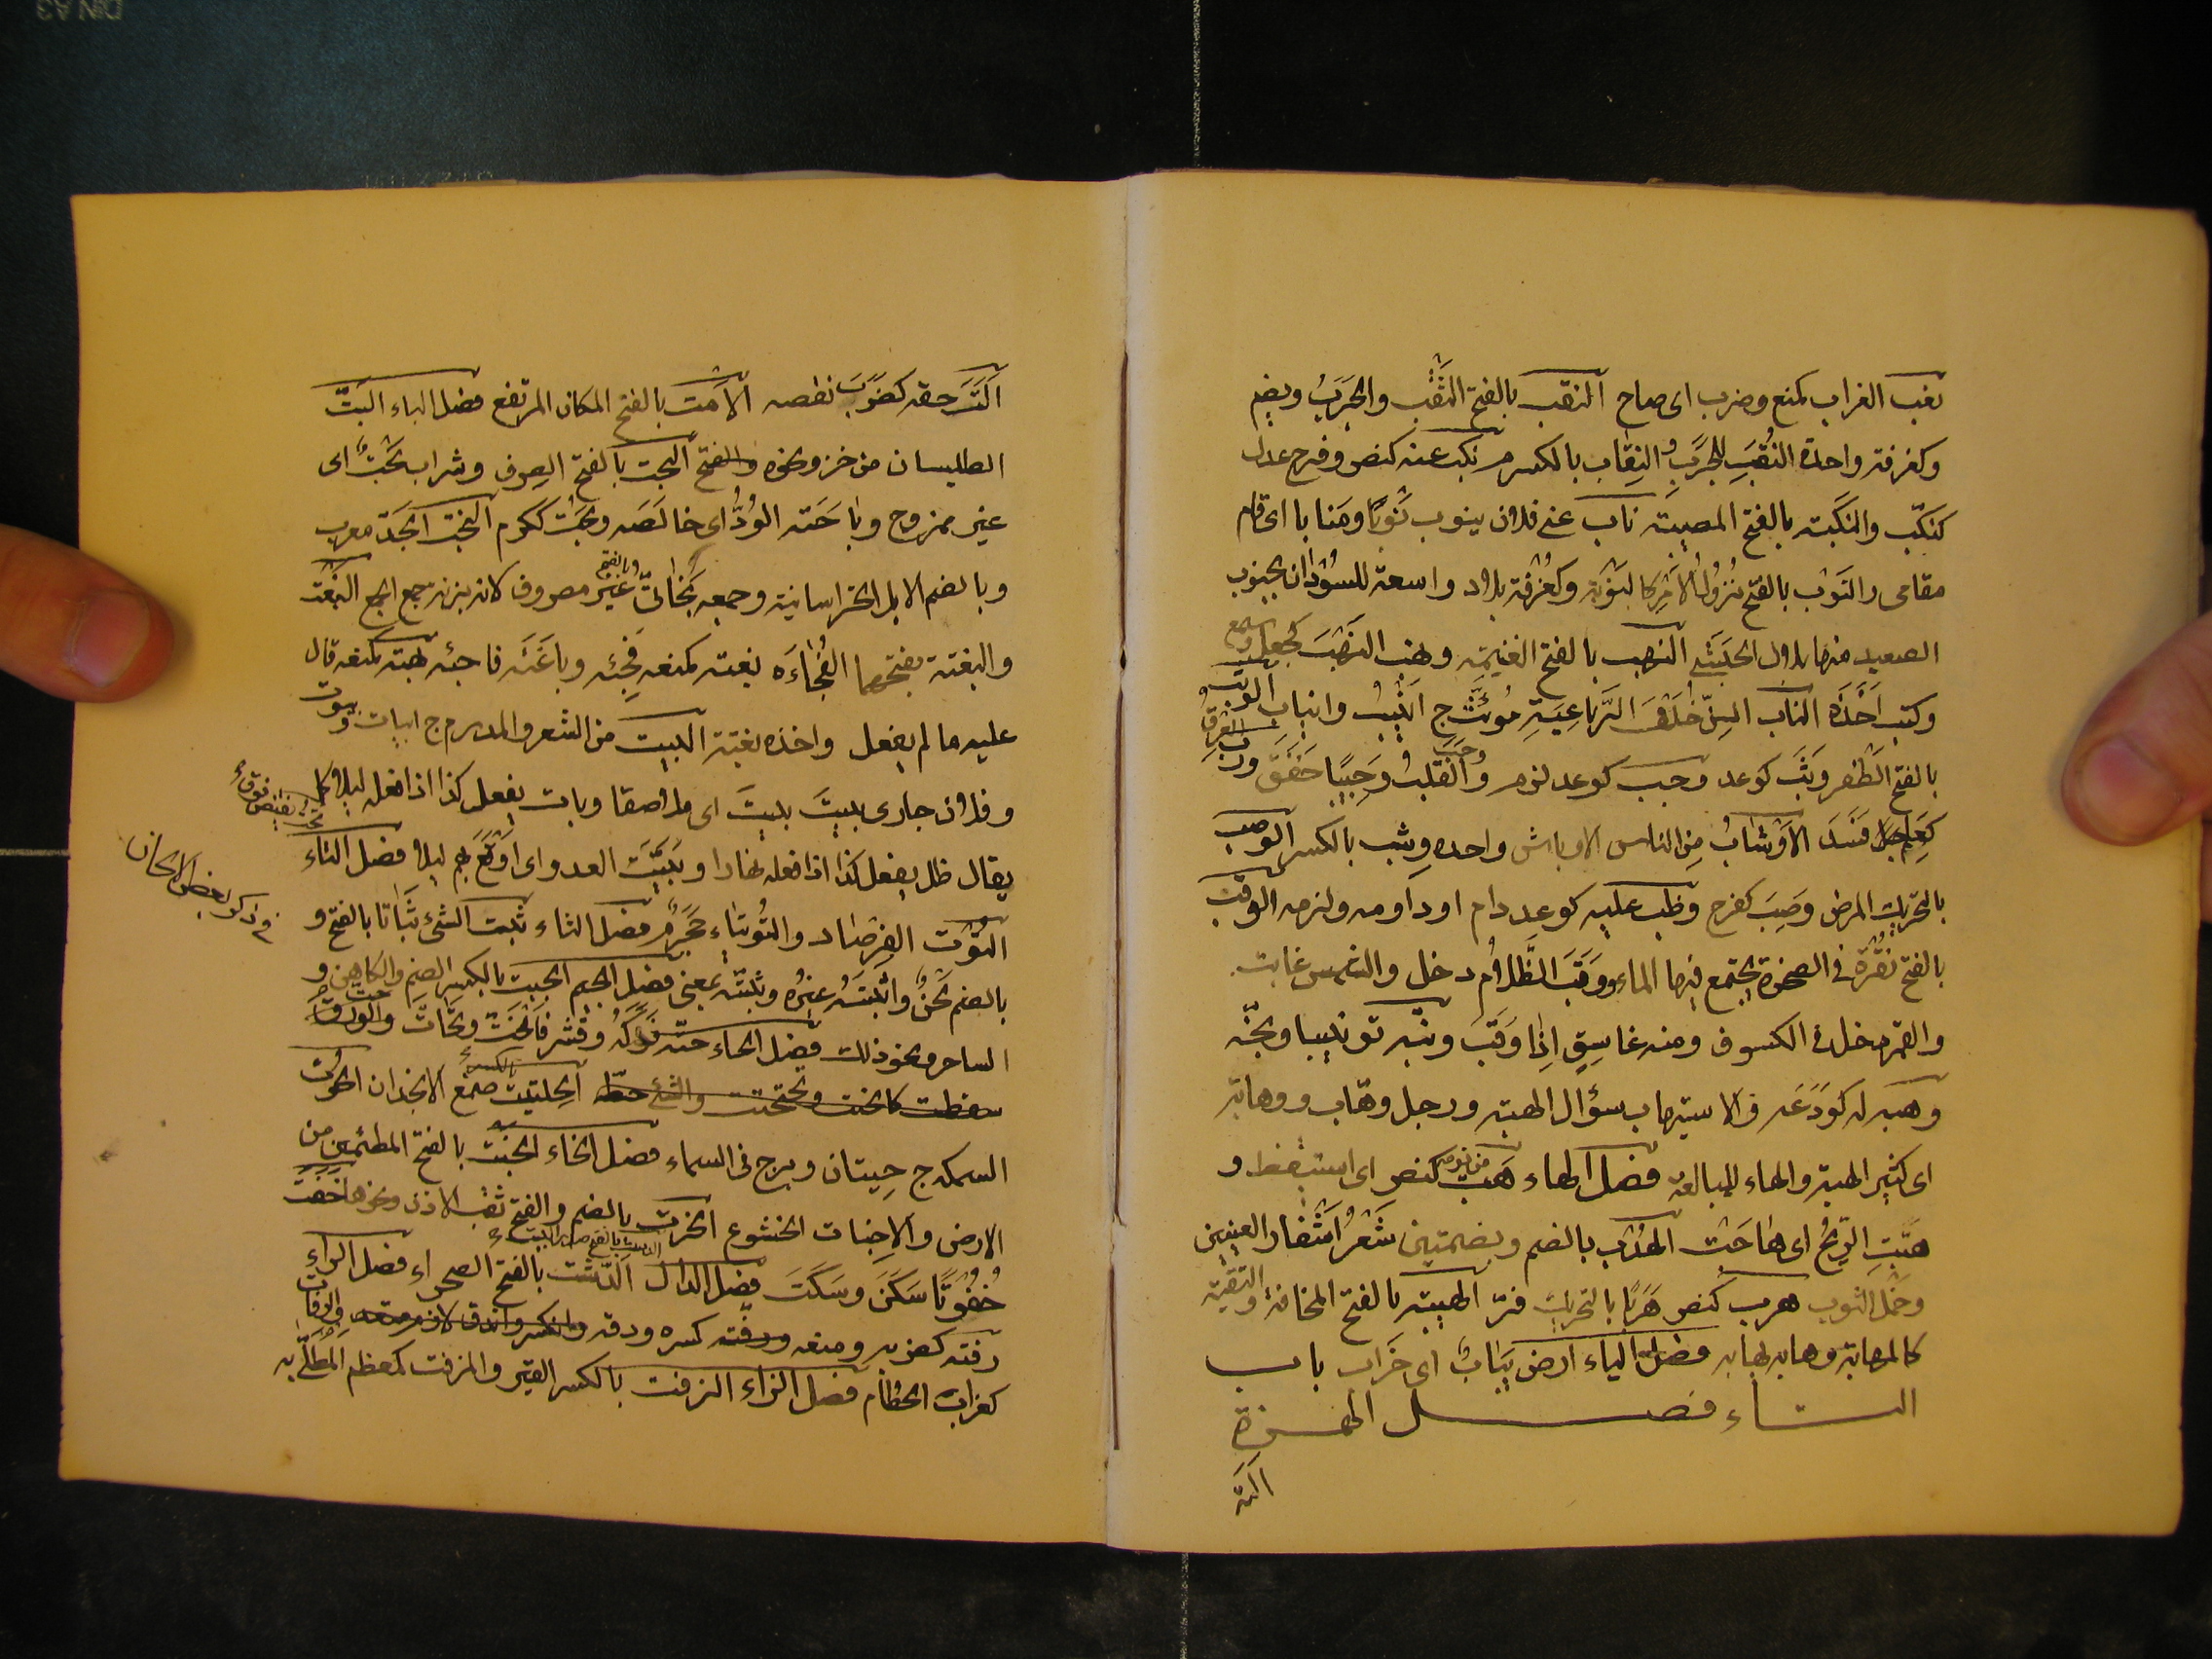 نعب الغراب كمنع وضرب اى صاح النقب بالفتح الثَّقْب والجَرَبُ ويضم
وكغرفة واحدة النُّقَبِ للجَرَبِ والنِقاب بالكسر نكب عنه كنصر وفرح عدل
كنكّب والنكبة بالفتح المصيبة ناب عنى فلان ينوب نَوْبًا ومنابا اى قام
مقامى والنَوْب بالفتح نُزُولُ الأمْرِ كالنَوْبَة وكغُرْفة بلاد واسعة للسُّودان بجنوب
الصعيد منها بلال الحبشى النهب بالفتح الغنيمة ونهب النَهْبَ كجعل وسمع
وكتب اَخَذَه الناب السِنّ خَلْفَ الرَّباعِيَةِ مُؤنَّث ج اَنْيُبٌ وانياب الوثب
بالفتح الظَفر وثَبَ كوعد وجب كوعد لزم والقَلْبُ وَجِيبًا خَفَقَ ورب العِرقُ
كوَجِلَ فَسَدَ الأوْشابُ مِنَ الناس الاوباش واحده وِشب بالكسر الوصب
بالتحريك المرض وَصِبَ كفرح وظب عليه كوعد دام او داومه ولزمه الوقب
بالفتح نُقْرَة فى الصخرة يجتمع فيها الماء ووَقَبَ الظَّلامُ دخل والشمس غابت
والقمر دخل فى الكسوف ومنه غاسِقٍ إذا وَقَبَ ونبّه تونيبا وبخّه
وهبه له كوَدَعَه والاستيهاب سؤال الهبة ورجل وهّاب ووهابة
اى كثير الهبة والهاء للمبالغة فصل الهاء هَبَّ من نومه كنصر اى استيقظ و
هبّتِ الرِّيحُ اى هاجَتْ الهُدْب بالضم وبضمتين شَعْرُ اَشْفار العينين
وخَمْل الثوب هرب كنصر هَرَبًا بالتحريك فرّ الهيبة بالفتح المخافة والتقية
كالمهابة وهابه يهابه فصل الياء ارض يَبابٌ اى خَراب باب
التاء فصل الهمزة
اَلَتَه
اَلَتَه حقه كضَرَبَ نقصه الأَمْت بالفتح المكان المرتفع فصل الباء البَتّ
الطيلسان من خز ونحوه البحت بالفتح الصِرف وشراب بَحْتٌ اى
غير ممزوج وباحَته الوُدَّ اى خالَصَه وبَحُتَ ككرم البخت الجَدّ معرب
وبالضم الابل الخراسانية وجمعه بَخَاتىُّ غَيْرَ مصروف لانه بزنة جمع الجمع البَغْت
والبغتة بفتحهما الفُجْاءَة بغته كمنعه فَجِئَه وباغَتَه فاجئه بهته كمنعه قال
عليه ما لم يفعل واخذه بغتة البيت من الشعر والمدر م ج ابيات وبيوت
وفلان جارى بيتَ بيتَ اى ملاصقا وبات يفعل كذا اذا فعله ليلا كما
يقال ظل يفعل كذا اذا فعله نهارا وبَيَّتَ العدو اى اَوْقَعَ بهم ليلا فصل التاء
التُوت الفِرْصاد والتُوتياء حَجَرٌ م فصل الثاء ثبت الشئ ثَباتا بالفتح و
بالضم واَثْبَتَه غيرُه وثَبَّتَه بمعنى فصل الجيم الجبت بالكسر الصنم والكاهن و
الساحر ونحو ذلك فصل الحاء حتّه فَرَكَه وقشره فانْحَتَّ وتَحَاتَّ والورقُ
سقطت كانحتت وتحتحتت والشئ حطّه الحِلتيت بالكسر صَمْغ الأنجذان الحُوت
السمكة ج حِيتان وبرج فى السماء فصل الخاء الخَبْت بالفتح المطئمن من
الارض والاِخبات الخشوع الخرت بالضم والفتح ثقب الاذن ونحوها خَفَتَ
خُفُوتًا سَكَنَ وسَكَتَ فصل الدال الدَّشْت بالفتح الصحراء فصل الراء
رفته كضربه ومنعه كسره ودقه وانكسر واندق لازم متعد والرفات
كغراب الحُطام فصل الزاء الزفت بالكسر القير والمزفت كمعظم المُطَلَّى به
وذكر بعض الالحان